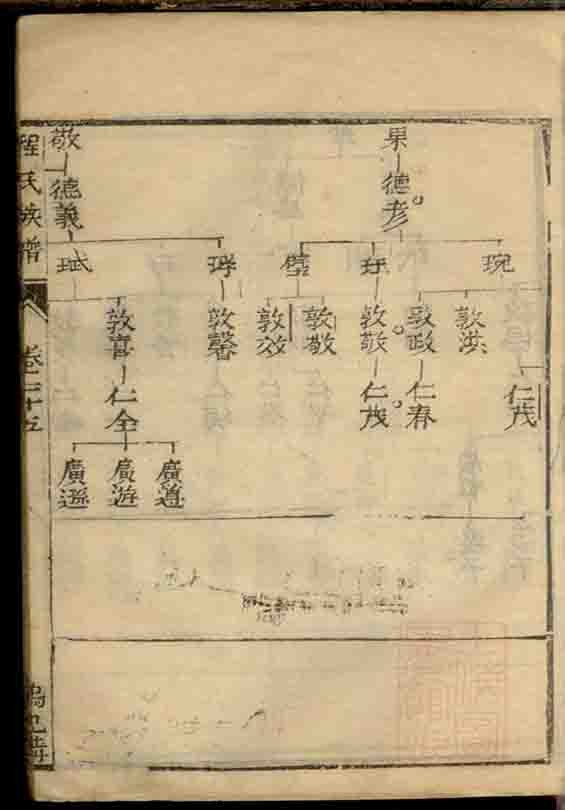 果 敬
德彥 德義
琬 玨 璧 琈 珷
敦洪 敦政 敦敬 敦敬 敦效 敦馨 敦喜
仁茂 仁春 仁茂 仁全
廣遵 廣游 廣遜
程氏族譜
卷二十五